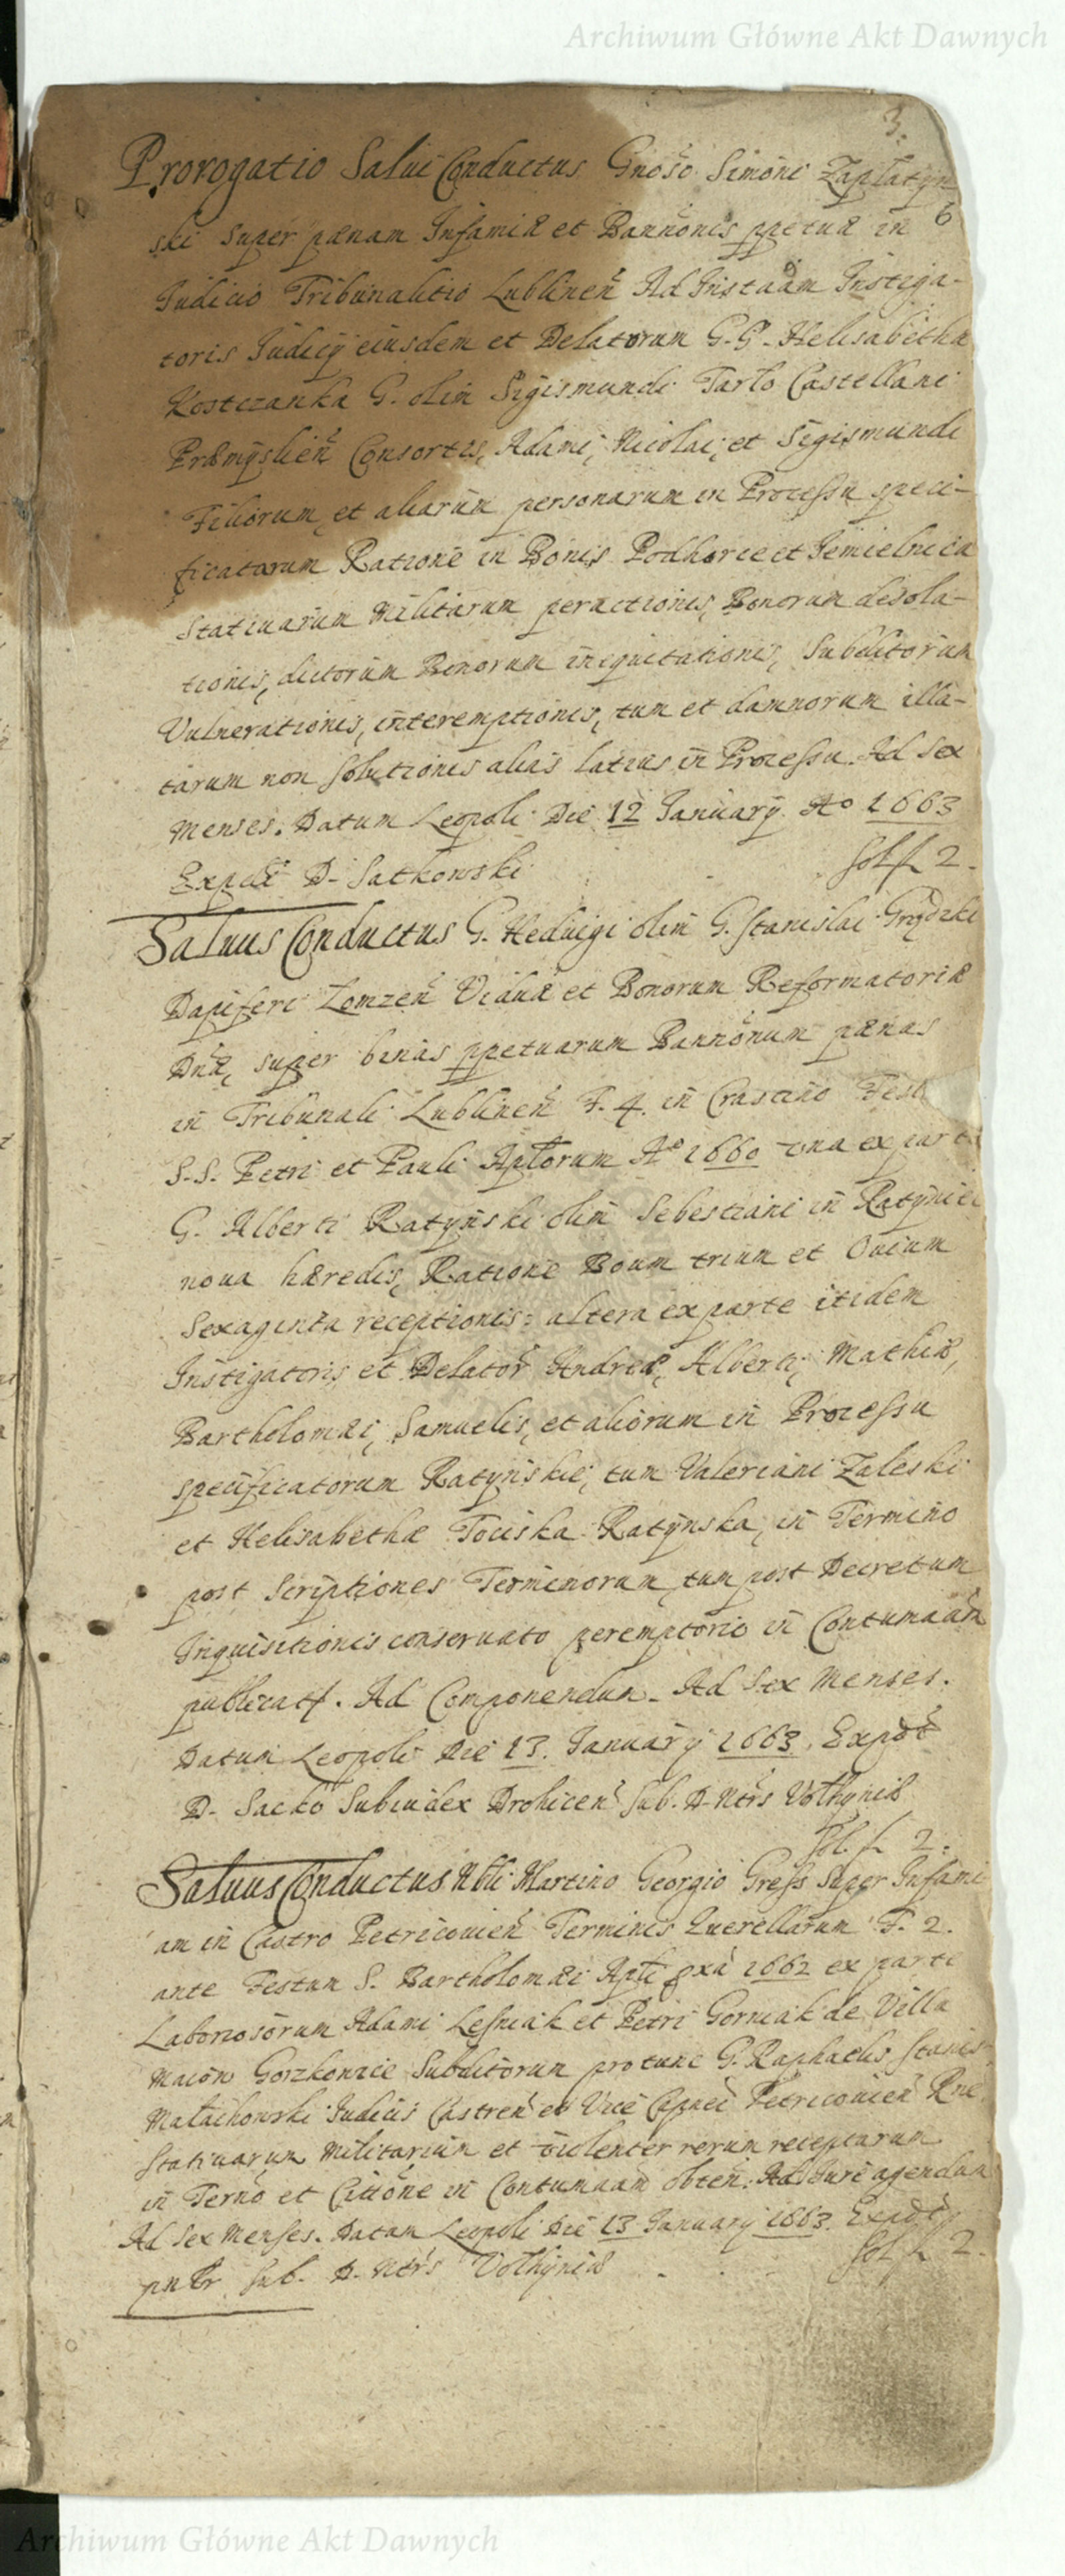 Archiwum Główne Akt Dawnych
3.
Prorogatio Salui Conductus Gnoso Simoni Zaplatyn
6
ski super pænam Infamiæ et Bannonis ppetuæ in
Iudicio Tribunalitio Lublinen Ad Instaam Instiga-
toris Iudicij eiusdem et Delatorum G. G. Helisabetha
Kostczanka G. olim Sigismundi Tarlo Castellani
Præmyslien Consortis, Adami, Nicolai, et Sigismundi
Filiorum, et aliarum personarum in Processu speci-
ficatarum Ratione in Bonis Podhorce et Iemielnica
Statiuarum Militarum peractionis, Bonorum desola-
tionis, dictorum Bonorum inequitationis, Subditorum
Vulnerationis, interemptionis, tum et damnorum illa-
tarum non solutionis alias latius in Processu. Ad Sex
Menses. Datum Leopoli Die 12 Ianuarij Ao 1663
Expdt D. Satkowski
Sol f 2.
Saluus Conductus G. Heduigi olim G. Stanislai Grądzki
Dapiferi Lomzen Viduæ et Bonorum Reformatoriæ
Dnæ, super binas ppetuarum Bannonum pænas
in Tribunali Lublinen F. 4. in Crastino Fest
S.S. Petri et Pauli Aptorum Ao 1660 una ex parte
G. Alberti Ratynski olim Sebestiani in Ratynici
noua hæredis, Ratione Boum trium et Ouium
Sexaginta receptionis: altera ex parte itidem
Instigatoris et Delator Andreæ, Alberti, Mathiæ,
Bartholomæi, Samuelis, et aliorum in Processu
specificatorum Ratynskie, tum Valeriani Zaleski
et Helisabethæ Tociska Ratynska, in Termino
post Scriptiones Terminorum, tum post Decretum
Inquisitionis conseruato peremptorio in Contumaam
publicat. Ad Componendum. Ad Sex Menses.
Datum Leopoli Die 13. Ianuarij 1663. Expdt
D. Sacko Subiudex Drohicen Sub. D. Ntrs Volhyniæ
Sol. f. 2.
Saluus Conductus Nbli Martino Georgio Gress super Infami
am in Castro Petricouien Terminis Querellarum F. 2.
ante Festum S. Bartholomæi Apti pxa 1662 ex parte
Laboriosorum Adami Lesniak et Petri Gorniak de Villa
Gorzkowice Subditorum pro tunc G. Raphaelis Stanis
Malachowski Iudicis Castren et Vice Capnei Petricouien Rne
Statiuarum Militarium et violenter rerum receptarum
in Terno et Citione in Contumaam obten. Ad Iure agendum
Ad Sex Menses. Datum Leopoli Die 13 Ianuarij 1663. Expdt
Sub. D. Ntrs Volhyniæ
Sol f 2.
Archiwum Główne Akt Dawnych